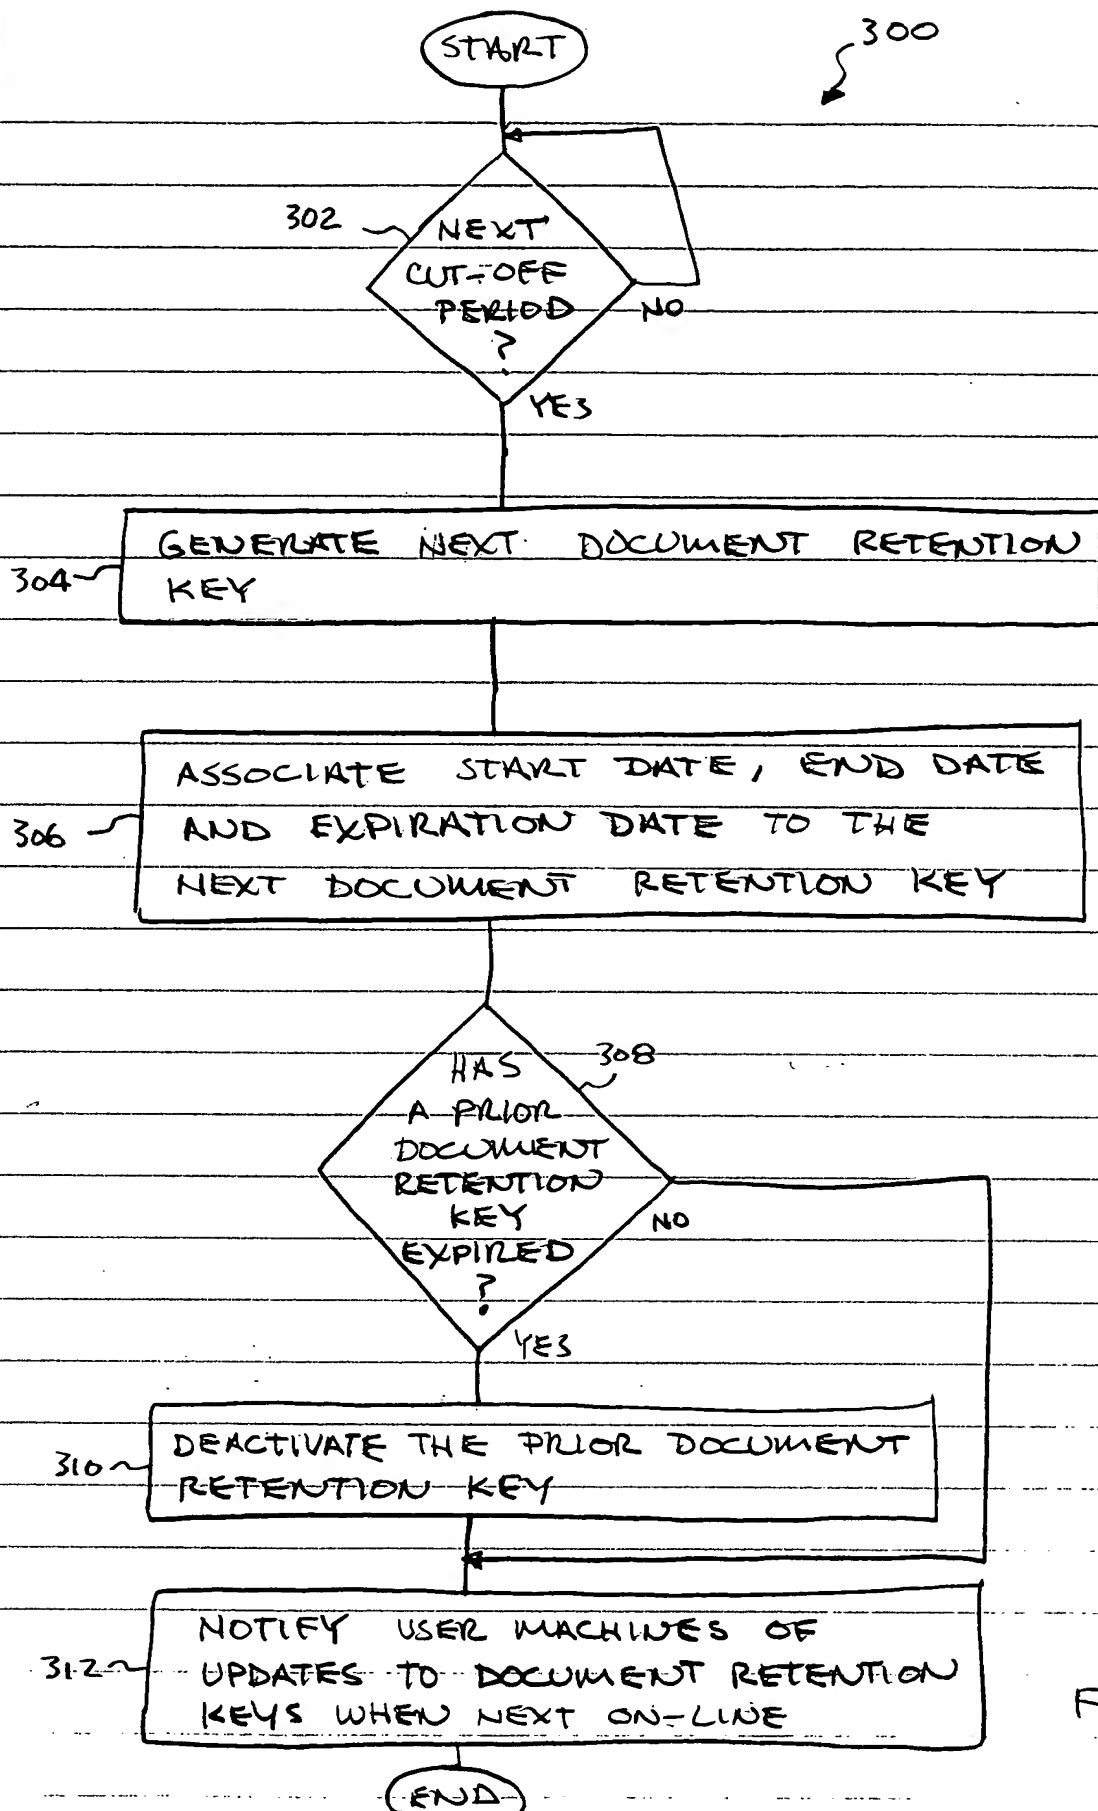 START
300
302
NEXT
CUT-OFF
PERIOD
?
NO
YES
GENERATE NEXT DOCUMENT RETENTION
KEY
304
ASSOCIATE START DATE, END DATE
AND EXPIRATION DATE TO THE
NEXT DOCUMENT RETENTION KEY
306
HAS
A PRIOR
DOCUMENT
RETENTION
KEY
EXPIRED
?
308
NO
YES
DEACTIVATE THE PRIOR DOCUMENT
RETENTION KEY
310
NOTIFY USER MACHINES OF
UPDATES TO DOCUMENT RETENTION
KEYS WHEN NEXT ON-LINE
312
F
END